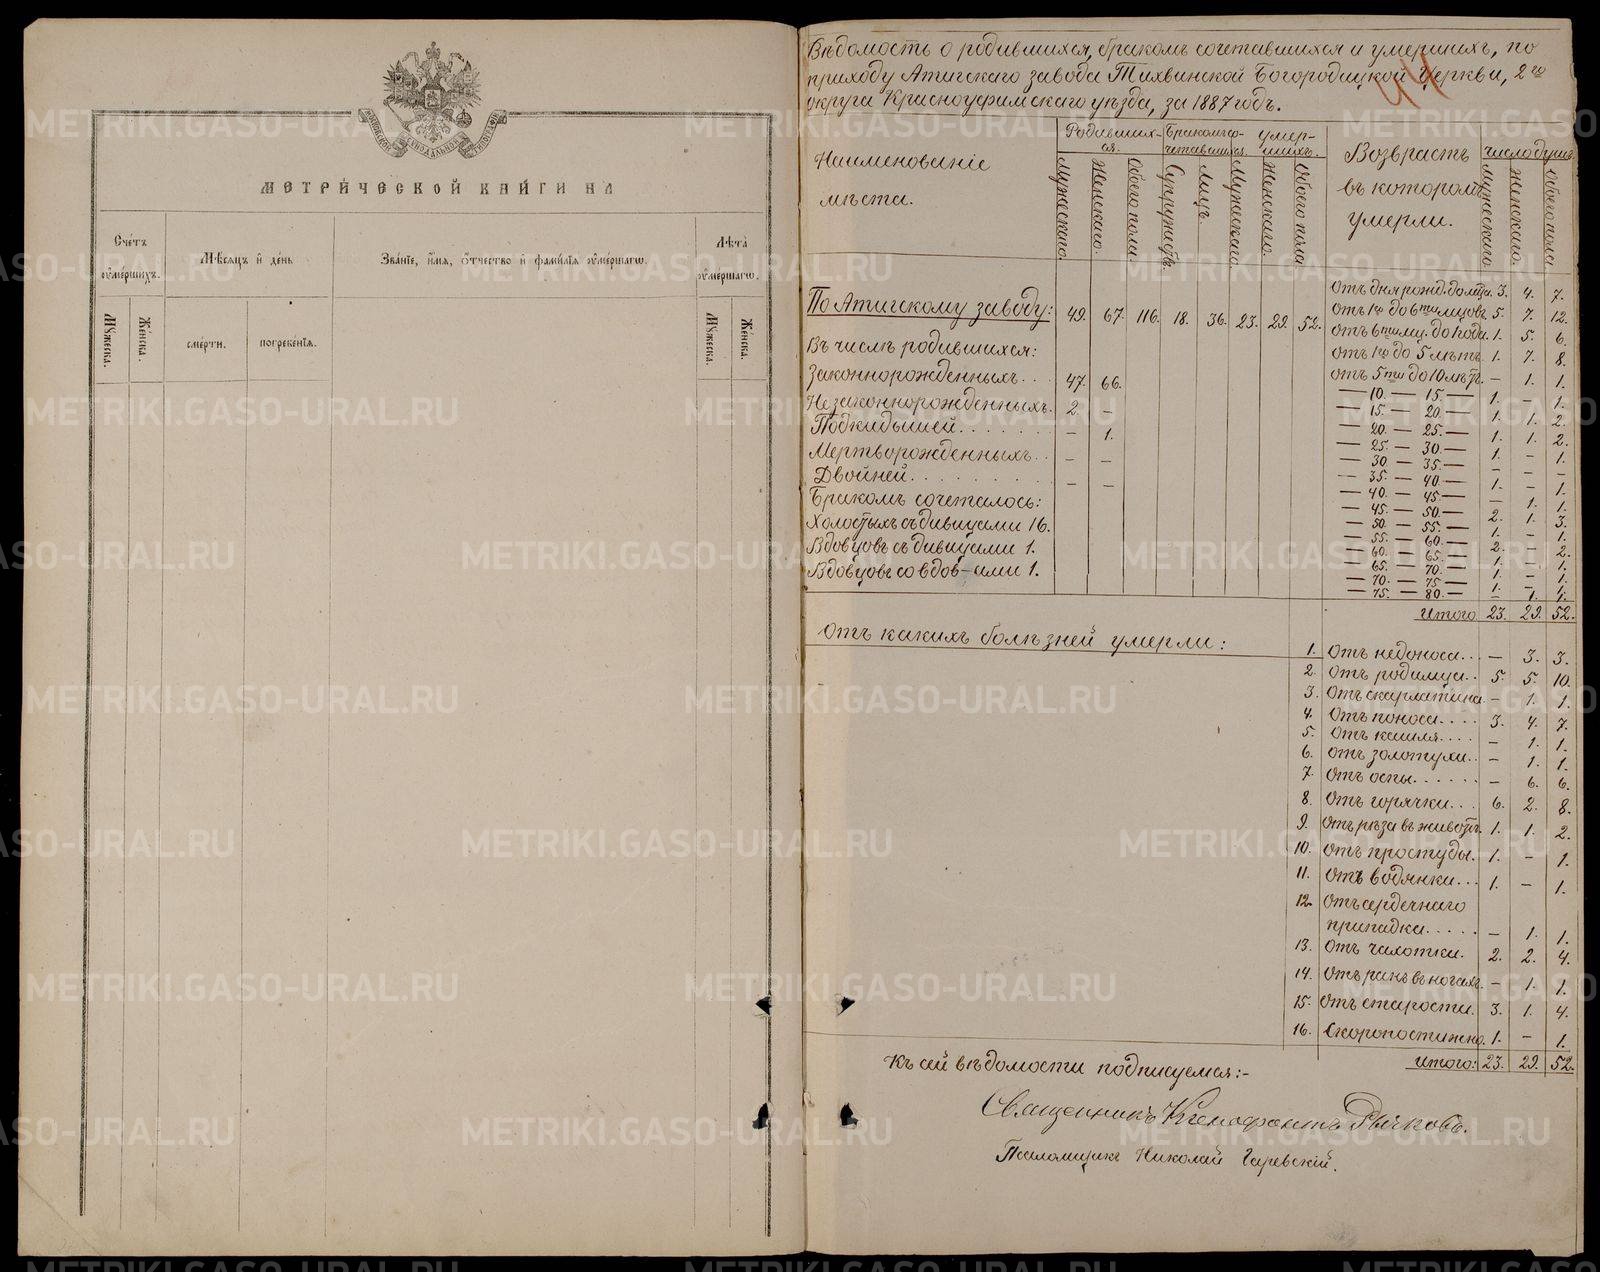 МЕТРИ́ЧЕСКОЙ КНИ́ГИ НА
Сче́тъ ᲂу҆ме́ршихъ.
Мѣ́сяцъ и҆ де́нь
Зва́нїе, и҆́мя, ѻ҆́тчество и҆ фамѝлїя ᲂу҆ме́ршагѡ.
Лѣ́та ᲂу҆ме́ршагѡ.
Мꙋ́жеска.
Же́нска.
сме́рти.
погребе́нїя.
Мꙋ́жеска.
Же́нска.
Вѣдомость о родившихся, бракомъ сочетавшихся и умершихъ, по
приходу Атигскаго завода Тихвинской Богородицкой Церкви, 2го
округа Красноуфимскаго уѣзда, за 1887 годъ.
44
Наименованіе мѣста.
Родивших-ся.
Бракомъ со-четавшихся.
умер-шихъ.
Возврастъ въ которомъ умерли.
Число душъ.
Мужескаго.
Женскаго.
Обоего пола
Супружествъ.
Лицъ.
Мужескаго.
Женскаго.
Обоего пола
Мужескаго
Женскаго.
Обоего пола
По Атигскому заводу: 49. 67. 116. 18. 36. 23. 29. 52.
Въ числѣ родившихся:
Законнорожденныхъ... 47. 66.
Незаконнорожденныхъ. 2. –
Подкидышей....... – 1.
Мертворожденныхъ.. – –
Двойней......... – –
Бракомъ сочеталось:
Холостыхъ съ дивицами 16.
Вдовцовъ съ дивицами 1.
Вдовцовъ со вдов-ами 1.
Отъ дня рожд. до мца. 3. 4. 7.
Отъ 1го до 6ти мцовъ. 5. 7. 12.
Отъ 6ти мц. до года. 1. 5. 6.
Отъ 1го до 5 лѣтъ. 1. 7. 8.
Отъ 5ти до 10 лѣтъ. – 1. 1.
— 10. — 15. — 1. – 1.
— 15. — 20. — 1. 1. 2.
— 20. — 25. — 1. 1. 2.
— 25. — 30. — 1. – 1.
— 30. — 35. — – – –
— 35. — 40. — 1. – 1.
— 40. — 45. — – 1. 1.
— 45. — 50. — 2. 1. 3.
— 50. — 55. — 1. – 1.
— 55. — 60. — 2. – 2.
— 60. — 65. — 1. – 1.
— 65. — 70. — 1. – 1.
— 70. — 75. — 1. – 1.
— 75. — 80. — – 1. 1.
Итого 23. 29. 52.
Отъ какихъ болѣзней умерли:
1. Отъ недоноса... – 3. 3.
2. Отъ родимца.. 5. 5. 10.
3. Отъ скарлатина. – 1. 1.
4. Отъ поноса.... 3. 4. 7.
5. Отъ кашля.... – 1. 1.
6. Отъ золотухи.. – 1. 1.
7. Отъ оспы...... – 6. 6.
8. Отъ горячки... 6. 2. 8.
9. Отъ рѣза въ животѣ. 1. 1. 2.
10. Отъ простуды. 1. – 1.
11. Отъ водянки... 1. – 1.
12. Отъ сердечнаго
припадка..... – 1. 1.
13. Отъ чахотки. 2. 2. 4.
14. Отъ ранъ въ ногахъ. – 1. 1.
15. Отъ старости. 3. 1. 4.
16. Скоропостижно. 1. – 1.
Итого: 23. 29. 52.
Къ сей вѣдомости подписуемся:-
Священникъ Ксенофонтъ Рычковъ.
Псаломщикъ Николай Гаревскій.
METRIKI.GASO-URAL.RU